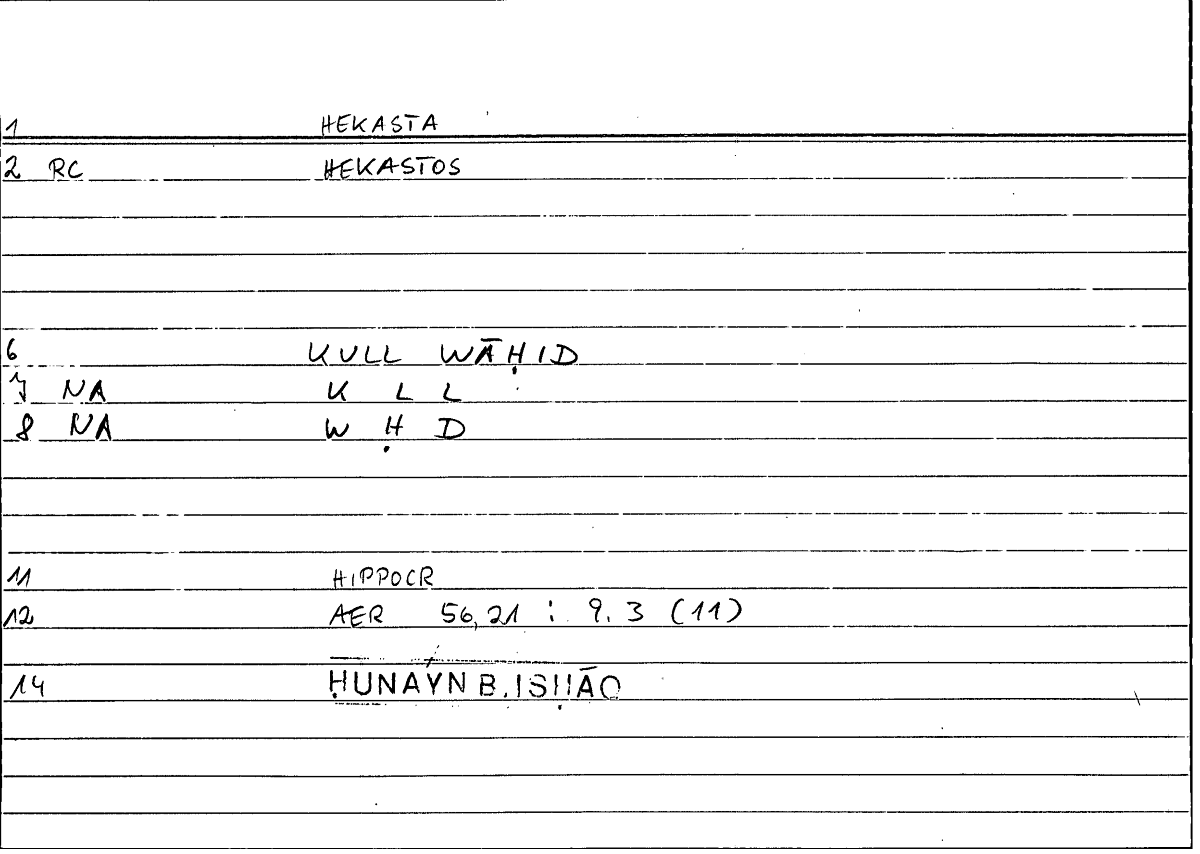 1 HEKASTA
2 RC HEKASTOS
6 KULL WĀḤID
7 NA K L L
8 NA W Ḥ D
11 HIPPOCR
12 AER 56,21 : 9.3 (11)
14 ḤUNAYN B. ISḤĀQ